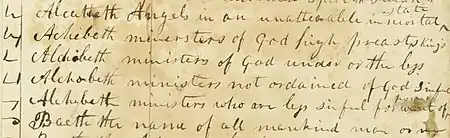 state
Alcatheth Angels in an unalterable immortal
Achebeth ministers of God high preasts Kings
Alchibeth ministers of God under or the less
Alchobeth ministers not ordained of God sinful
Alchubeth ministers who are less sinful for want of
power
Baeth the name of all mankind man or